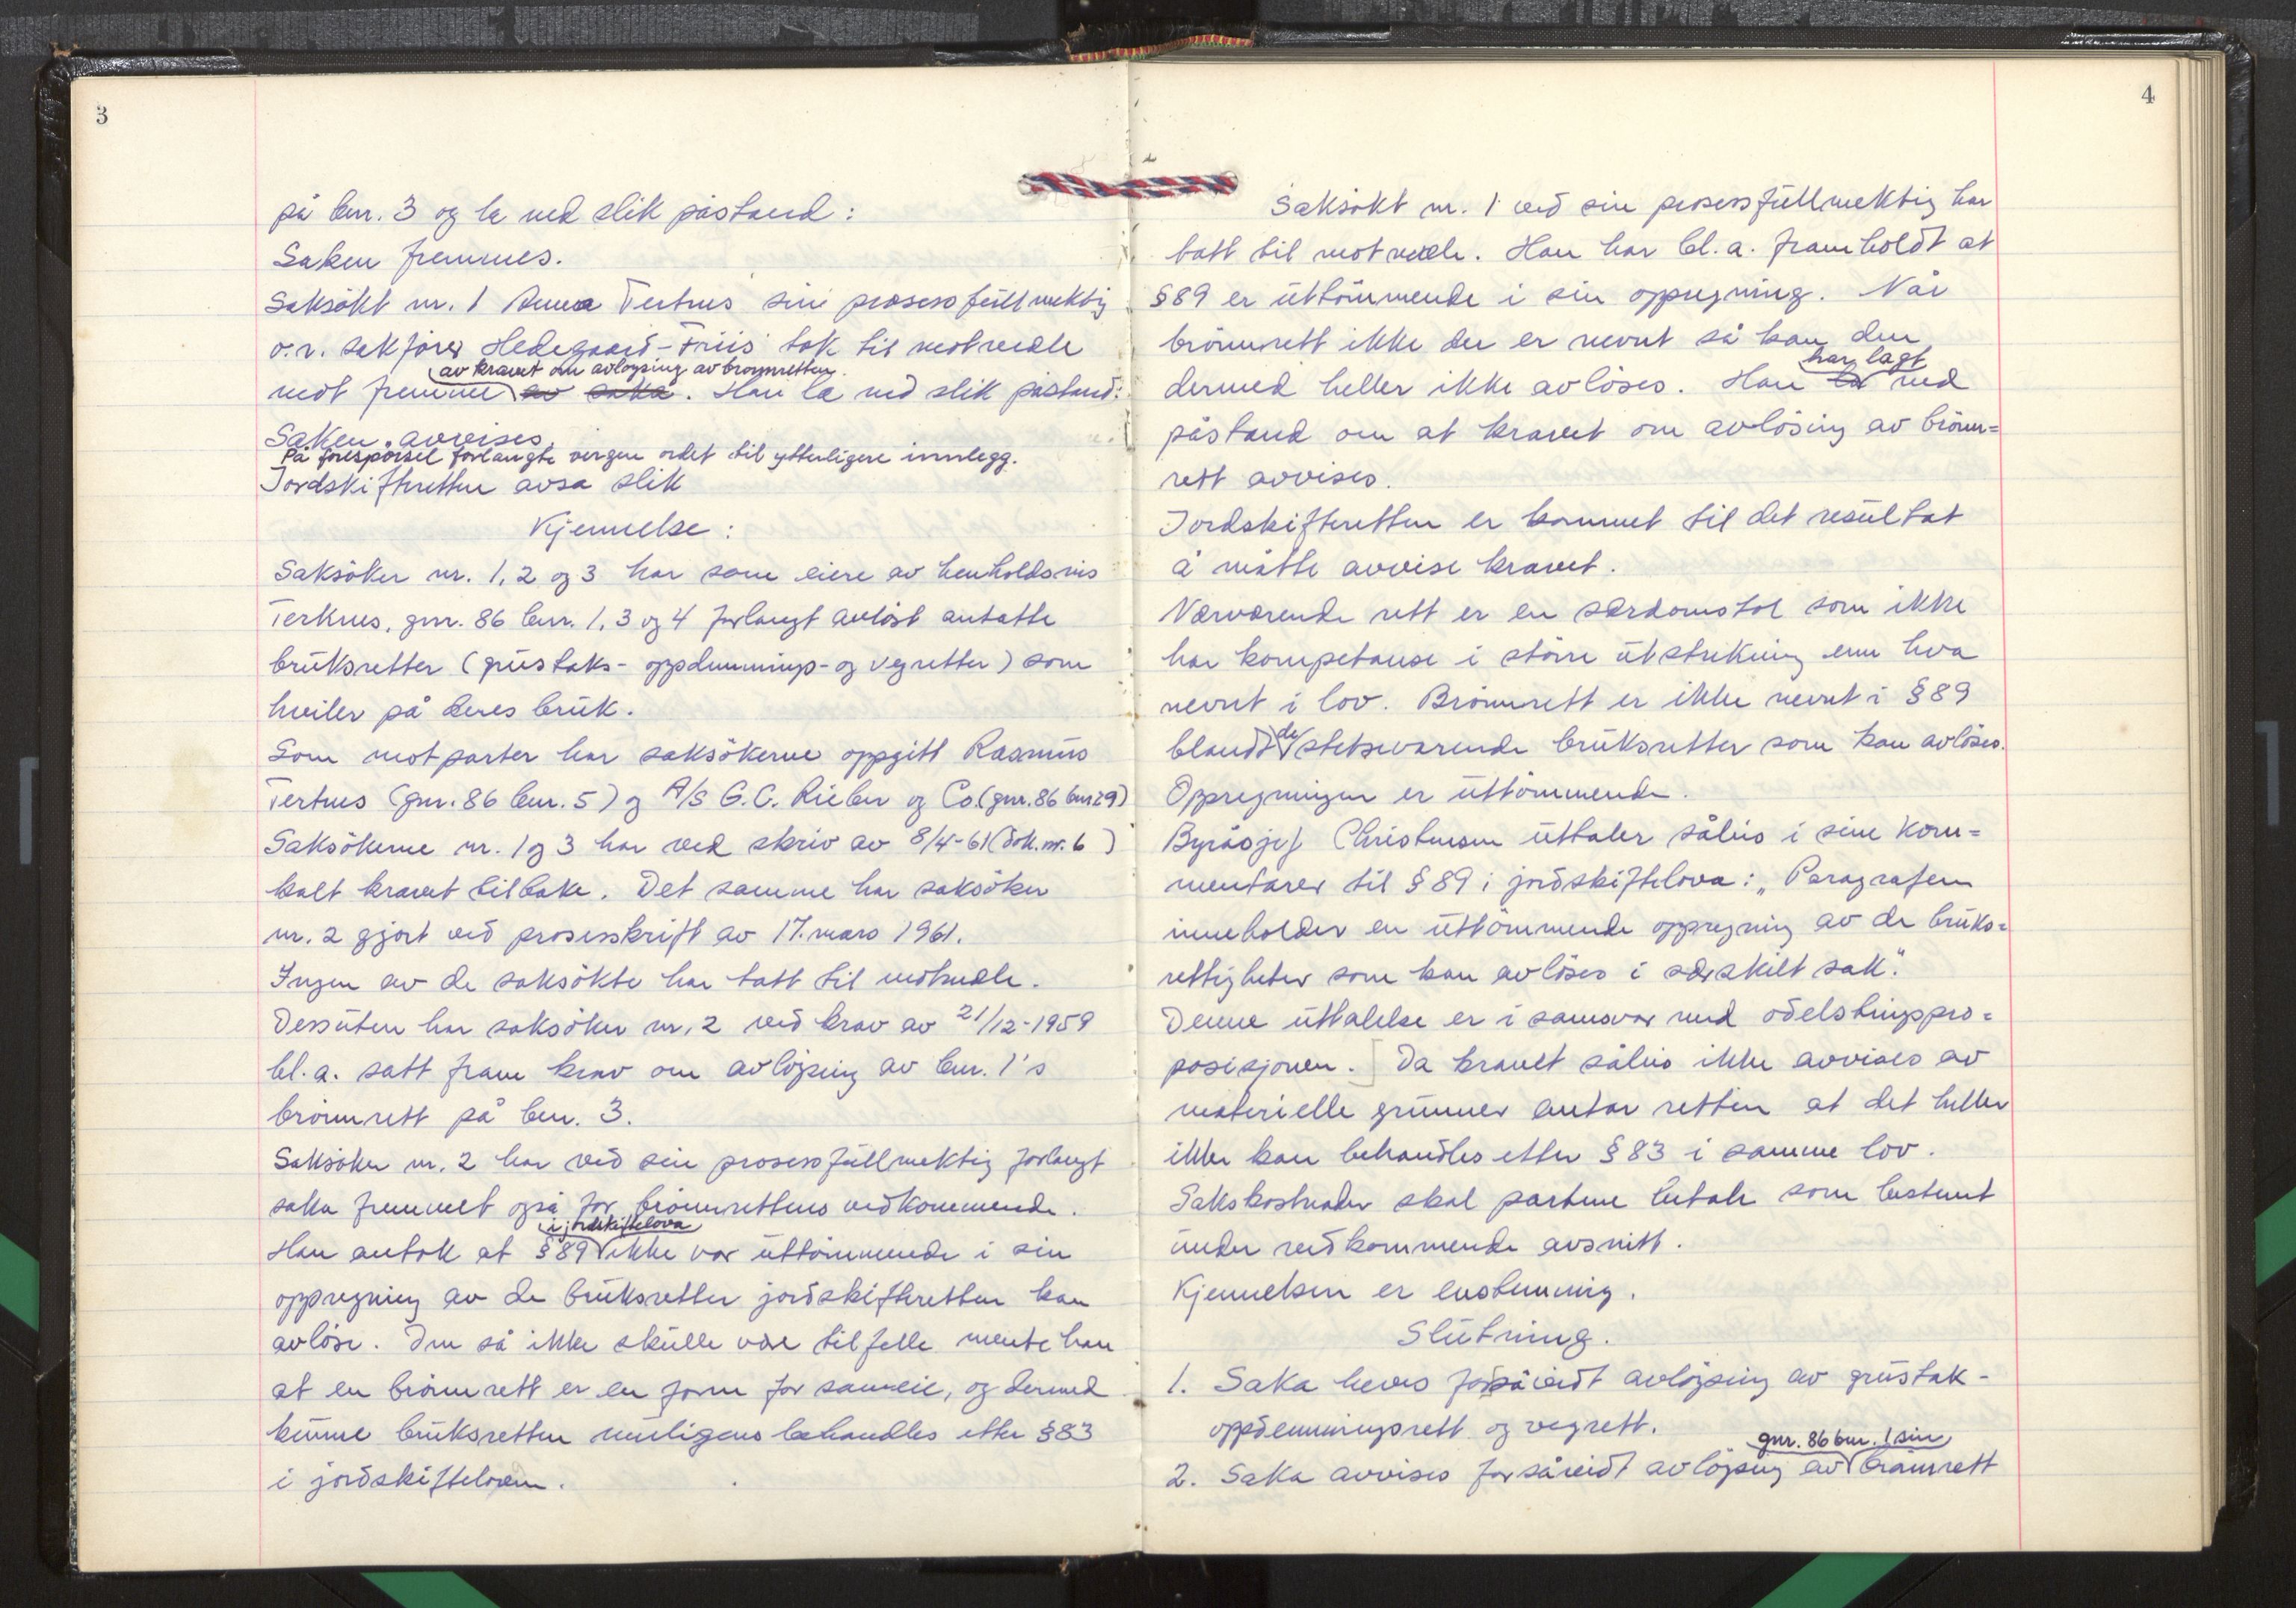 3
på bnr. 3 og la ned slik påstand:
Saken fremmes.
Saksökt nr. 1 Anna Tertnes sin prosessfullmektig
o.r. sakförer Hedegaard-Friis tok til motmæle
av kravet om avlöysing av brönnretten.
mot fremme av saka. Han la ned slik påstand:
Saken avvises.
På forespörsel forlangte vergen ordet til ytterligere innlegg.
Jordskifteretten avsa slik
Kjennelse:
Saksöker nr. 1, 2 og 3 har som eiere av henholdsvis
Terknes, gnr. 86 bnr. 1, 3 og 4 forlangt avlöst antatte
bruksretter (grustaks- oppdemmings- og vegretter) som
hviler på deres bruk.
Som motparter har saksökerne oppgitt Rasmus
Tertnes (gnr. 86 bnr. 5) og A/S G.C. Rieber og Co. (gnr. 86 bnr 29)
Saksökerne nr. 1 og 3 har ved skriv av 8/4-61 (dok. nr. 6 )
kalt kravet tilbake. Det samme har saksöker
nr. 2 gjort ved prosesskrift av 17. mars 1961.
Ingen av de saksökte har tatt til motmæle.
Dessuten har saksöker nr. 2 ved krav av 21/12-1959
bl.a. satt fram krav om avlöysing av bnr. 1's
brönnrett på bnr. 3.
Saksöker nr. 2 har ved sin prosessfullmektig forlangt
saka fremmet også for brönnrettens vedkommende.
i jordskiftelova
Han antok at § 89 ikke var uttömmende i sin
oppregning av de bruksretter jordskifteretten kan
avlöse. Om så ikke skulle være tilfelle mente han
at en brönnrett er en form for sameie, og dermed
kunne bruksretten muligens behandles etter § 83
i jordskifteloven.
4
Saksökt nr. 1 ved sin prosessfullmektig har
tatt til motmæle. Han har bl.a. framholdt at
§ 89 er uttömmende i sin oppregning. Når
brönnrett ikke der er nevnt så kan den
har lagt
dermed heller ikke avlöses. Han la ned
påstand om at kravet om avlösing av brönn=
rett avvises.
Jordskifteretten er kommet til det resultat
å måtte avvise kravet.
Nærværende rett er en særdomstol som ikke
har kompetanse i större utstrekning enn hva
nevnt i lov. Brönnrett er ikke nevnt i § 89
de
blandt stetsevarende bruksretter som kan avlöses.
Oppregningen er uttömmende.
Byråsjef Christensen uttaler således i sine kom=
mentarer til § 89 i jordskiftelova: „Paragrafen
inneholder en uttömmende oppregning av de bruks=
rettigheter som kan avlöses i særskilt sak".
Denne uttalelse er i samsvar med odelstingspro=
posisjonen. Da kravet således ikke avvises av
materielle grunner antar retten at det heller
ikke kan behandles etter § 83 i samme lov.
Sakskostnader skal partene betale som bestemt
under vedkommende avsnitt.
Kjennelsen er enstemmig.
Slutning.
1. Saka heves forsåvidt avlöysing av grustak-
oppdemmingsrett og vegrett.
gnr. 86 bnr. 1 sin
2. Saka avvises forsåvidt avlöysing av brönnrett